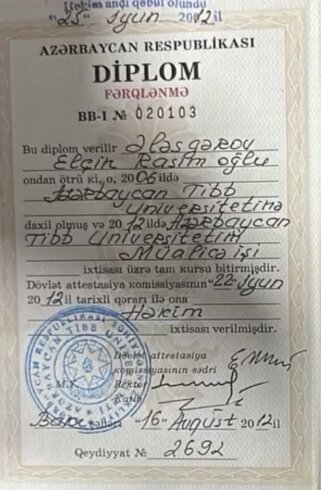 Həkim andı qəbul olundu
"25" İyun 2012il
AZƏRBAYCAN RESPUBLİKASI
DİPLOM
FƏRQLƏNMƏ
BB-I № 020103
Bu diplom verilir Ələsgərov
Elçin Rasim oğlu
ondan ötrü ki, o, 2006 ildə
Azərbaycan Tibb
Universitetinə
daxil olmuş və 2012ildə Azərbaycan
Tibb Universitetim
Müalicə işi
ixtisası üzrə tam kursu bitirmişdir.
Dövlət attestasiya komissiyasının "22" İyun
2012il tarixli qərarı ilə ona
Həkim
ixtisası verilmişdir.
Dövlət attestasiya
komissiyasının sədri
M.Y. Rektor
Katib
Bakı şəhəri "16" Avqust 2012il
Qeydiyyat № 2692
AZƏRBAYCAN RESPUBLİKASI
AZƏRBAYCAN TİBB